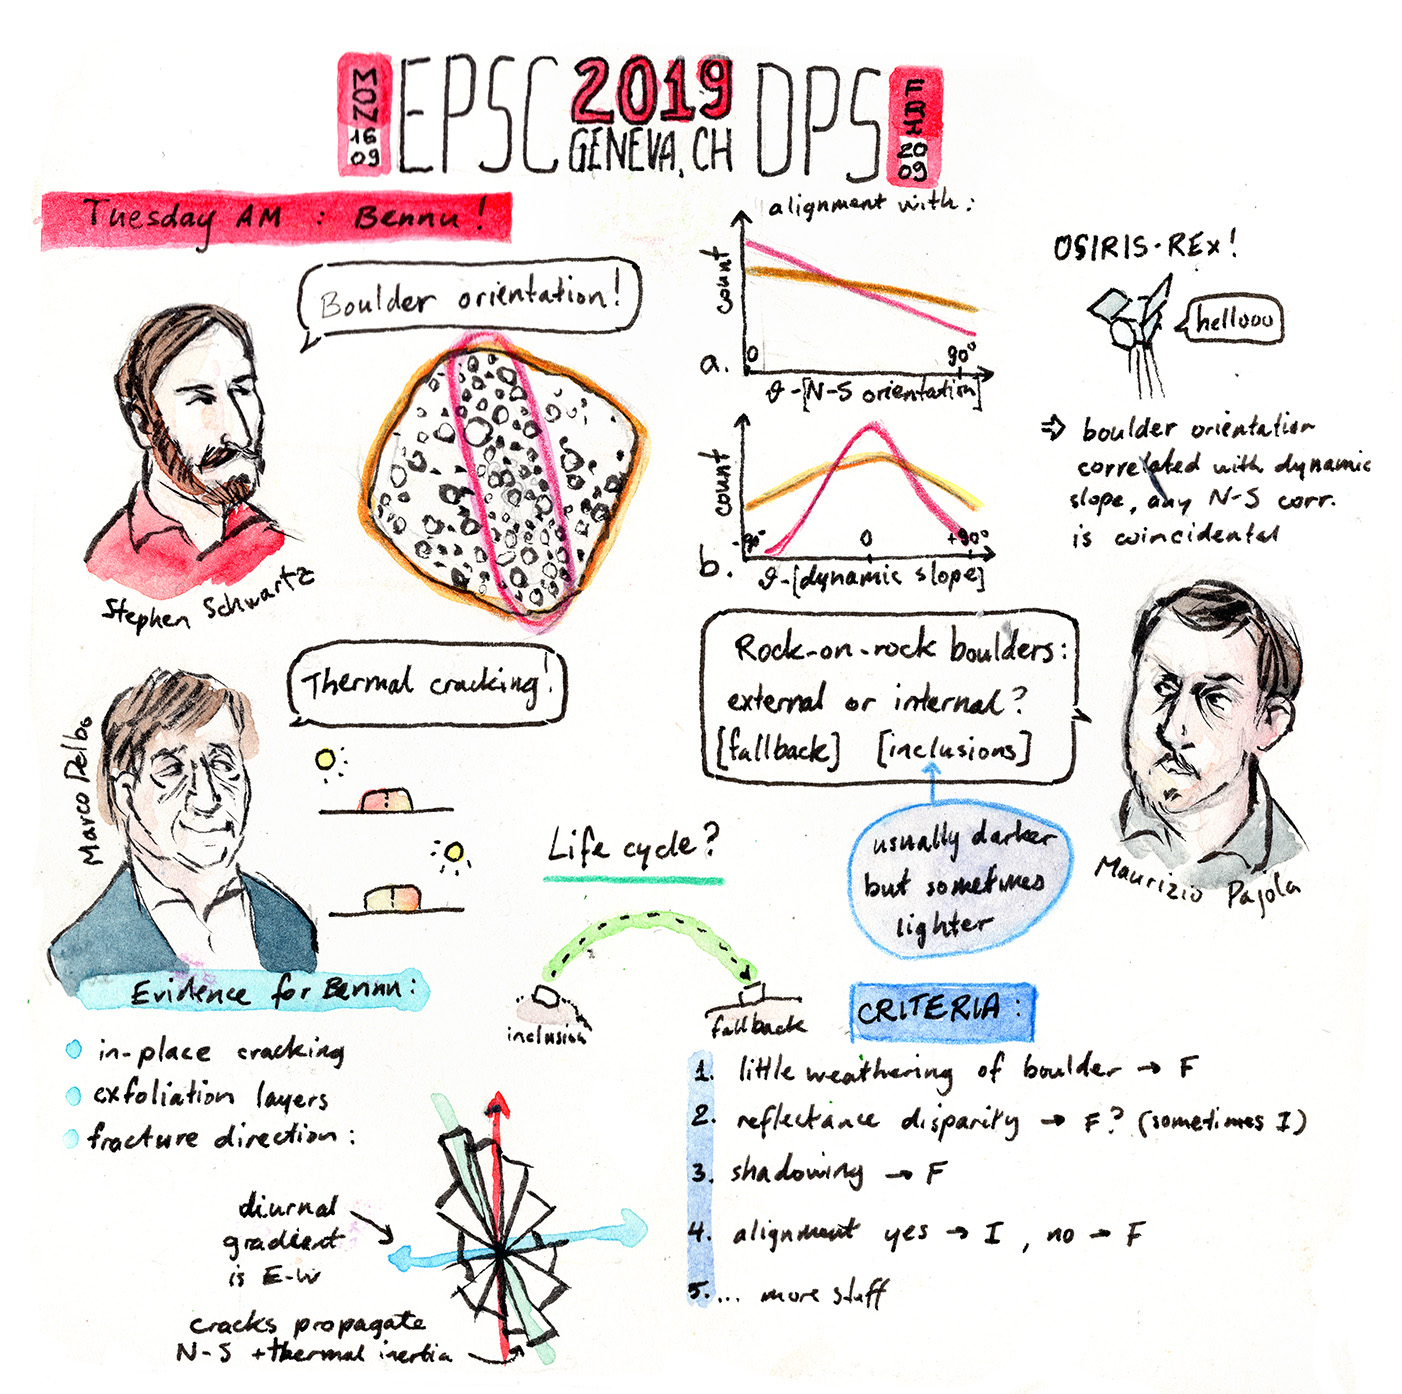 MON
16
09
EPSC 2019 DPS
GENEVA, CH
FRI
20
09
Tuesday AM : Bennu!
Boulder orientation!
Stephen Schwartz
alignment with:
count
0
90°
a.
θ-[N-S orientation]
count
-90°
0
+90°
b.
θ-[dynamic slope]
OSIRIS-REx!
hellooo
⇒ boulder orientation
correlated with dynamic
slope, any N-S corr.
is coincidental
Thermal cracking!
Marco Delbo
Rock-on-rock boulders:
external or internal?
[fallback] [inclusions]
usually darker
but sometimes
lighter
Maurizio Pajola
Life cycle?
inclusion
fallback
Evidence for Bennu:
in-place cracking
exfoliation layers
fracture direction:
diurnal
gradient
is E-W
cracks propagate
N-S + thermal inertia
CRITERIA:
1. little weathering of boulder → F
2. reflectance disparity → F? (sometimes I)
3. shadowing → F
4. alignment yes → I, no → F
5. ... more stuff